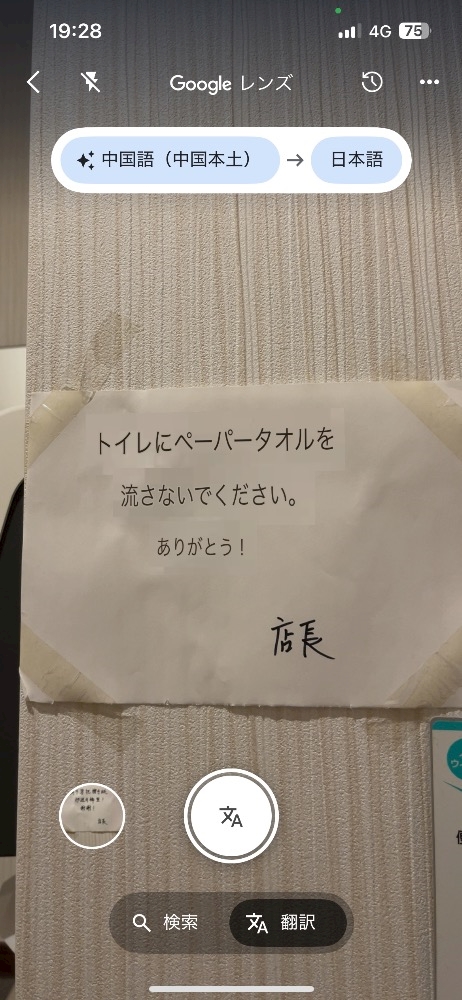 19:28
4G 75
Google レンズ
中国語（中国本土） → 日本語
トイレにペーパータオルを
流さないでください。
ありがとう！
店長
検索
文A 翻訳